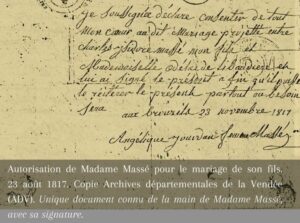 Je Soussignée déclare consentir de tout
mon cœur au dit Mariage projetté entre
Charles Isidore massé mon fils et
Mademoiselle
lui ai signé le présent afin qu'il puisse
le réitérer le présent partout ou besoin
Sera aux 23 novembre 1817
Angélique Jourdau femme Massé
Autorisation de Madame Massé pour le mariage de son fils,
23 août 1817. Copie Archives départementales de la Vendée
(ADV). Unique document connu de la main de Madame Massé,
avec sa signature.